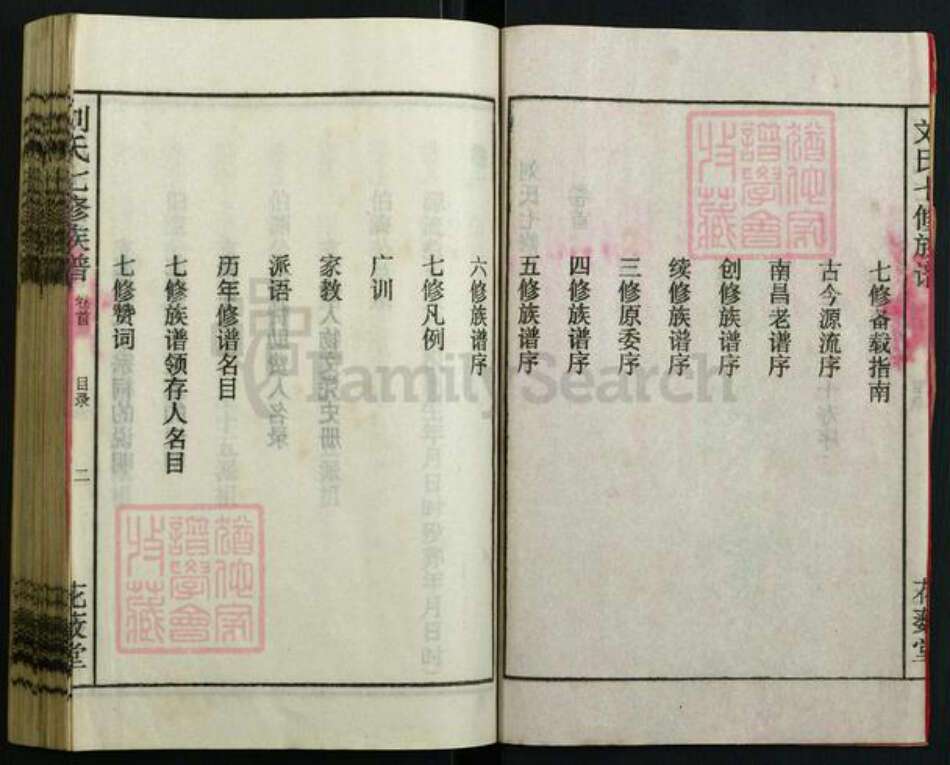 刘氏七修族谱
七修备载指南
古今源流序
南昌老谱序
创修族谱序
续修族谱序
三修原委序
四修族谱序
五修族谱序
六修族谱序
七修凡例
广训
家教
派语
历年修谱名目
七修族谱领存人名目
七修赞词
刘氏七修族谱
卷首
目录
二
FamilySearch